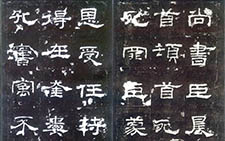 尚書臣晨
首頓首死
死罪臣蒙
恩受任符
得在奎婁
孔舊寓不